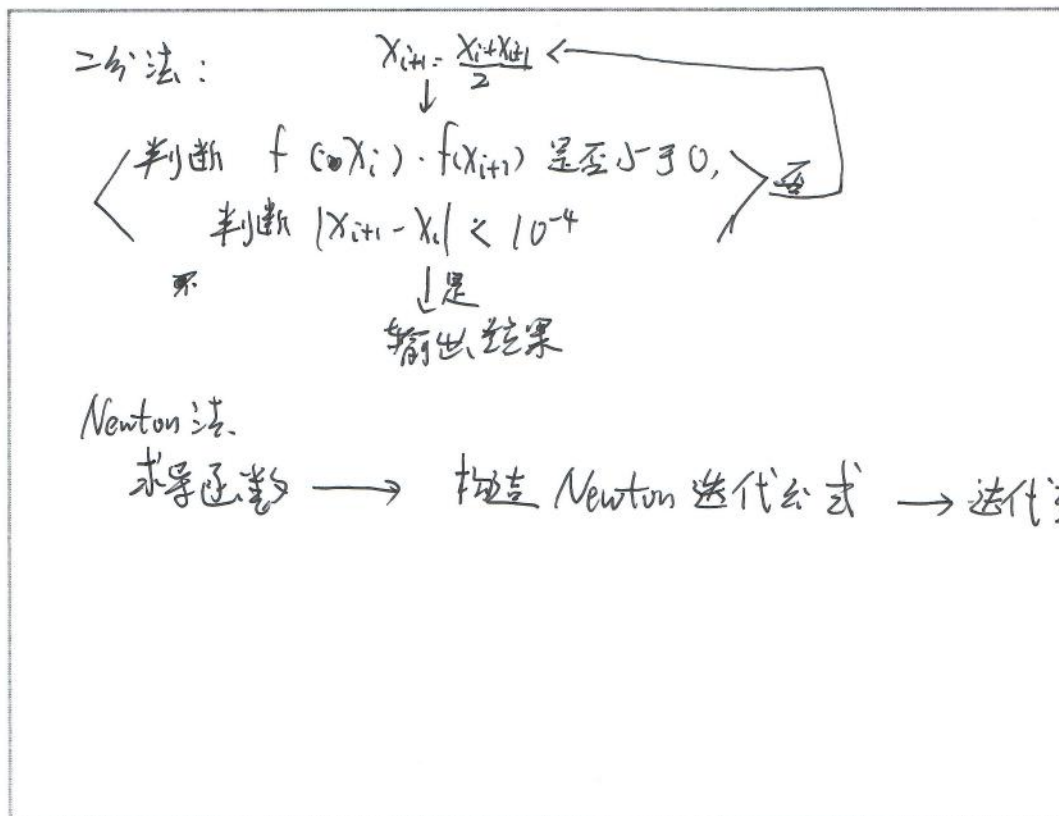 二分法:
x_{i+1} = \frac{x_i + x_{i+1}}{2}
判断 f(x_i)·f(x_{i+1}) 是否小于0,
否
判断 |x_{i+1} - x_i| < 10^{-4}
是
输出结果
Newton法.
求导函数 → 构造 Newton 迭代公式 → 迭代